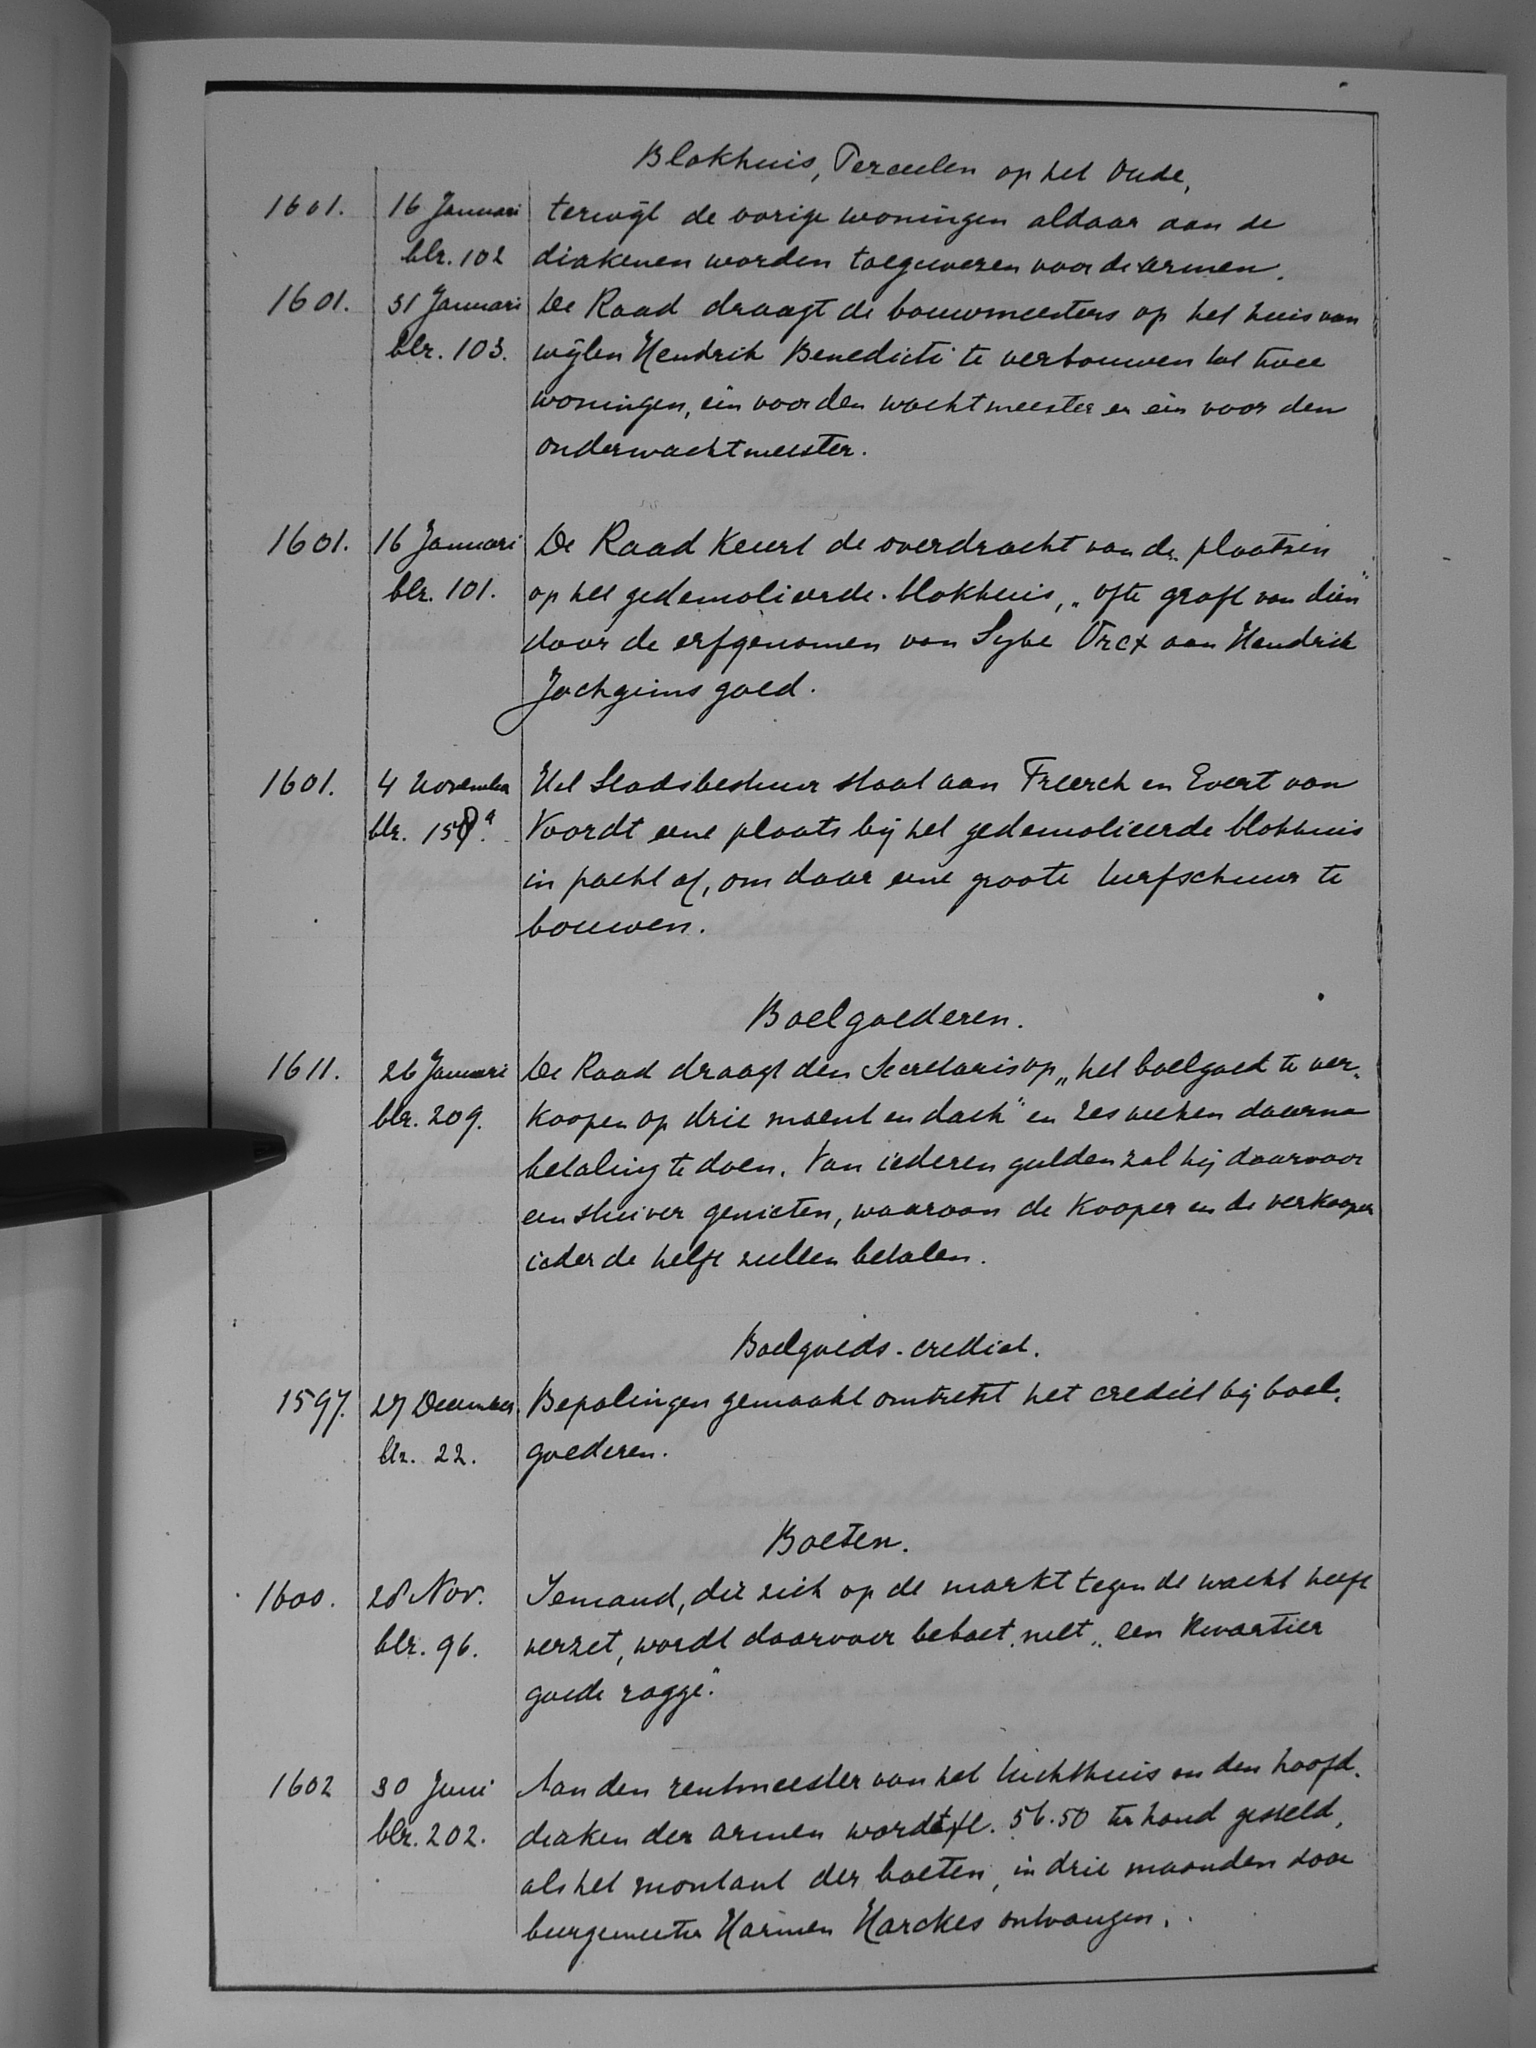 Blokhuis, Perceelen op het Oude,
1601. 16 Januari terwijl de vorige woningen aldaar aan de
blz. 102 diakenen worden toegewezen voor de armen.
1601. 31 Januari De Raad draagt de bouwmeesters op het huis van
blz. 103. wijlen Hendrik Benedicti te verbouwen tot twee
woningen, één voor den wachtmeester en één voor den
onderwachtmeester.
1601. 16 Januari De Raad keurt de overdracht van de plaatsen
blz. 101. op het gedemolieerde blokhuis, „ofte graft van dien"
door de erfgenamen van Sybe Orcx aan Hendrik
Jochgims goed.
1601. 4 November Het Stadsbestuur staat aan Freerck en Evert van
blz. Voordt eene plaats bij het gedemolieerde blokhuis
in pacht af, om daar eene groote turfschuur te
bouwen.
Boelgoederen.
1611. 26 Januari De Raad draagt den Secretaris op „het boelgoed te ver-
blz. 209. koopen op drie maent en dach" en zes weken daarna
betaling te doen. Van iederen gulden zal hij daarvoor
een stuiver genieten, waarvan de kooper en de verkooper
ieder de helft zullen betalen.
Boelgoeds-crediet.
1597. 27 December Bepalingen gemaakt omtrent het crediet bij boel-
blz. 22. goederen.
Boeten.
1600. 28 Nov. Iemand, die zich op de markt tegen de wacht heeft
blz. 96. verzet, wordt daarvoor beboet met „een kwartier
goede rogge".
1602 30 Juni Aan den rentmeester van het tuchthuis en den hoofd-
blz. 202. diaken der armen wordt fl. 56.50 ter hand gesteld,
als het montant der boeten, in drie maanden door
burgemeester Harmen Harckes ontvangen.